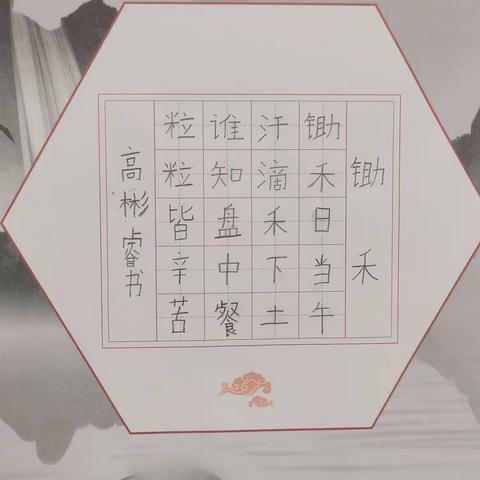 锄禾
锄禾日当午
汗滴禾下土
谁知盘中餐
粒粒皆辛苦
高彬睿书